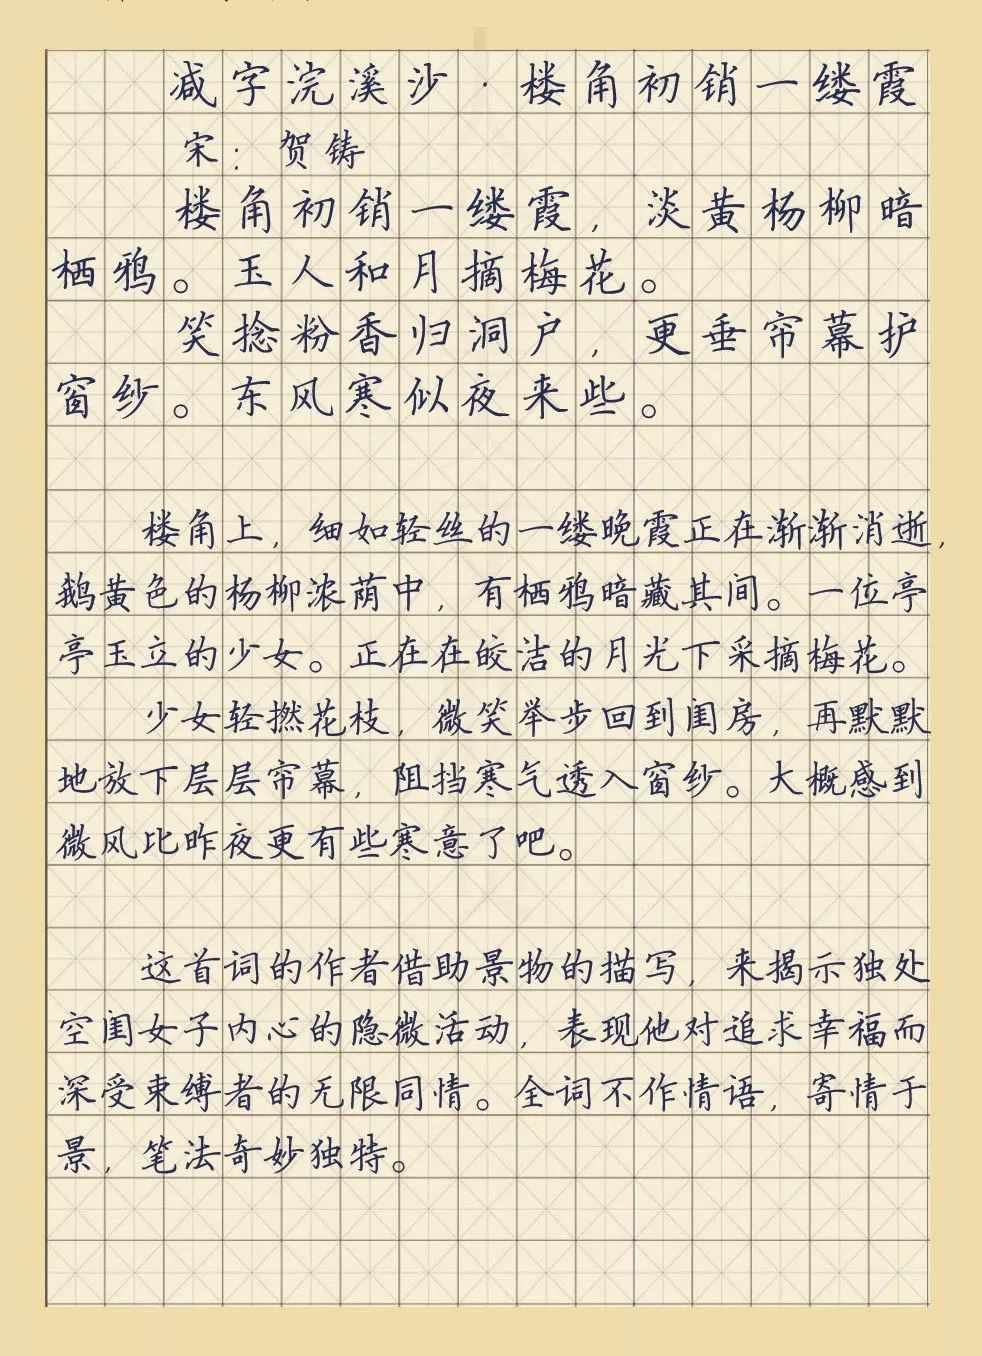 减字浣溪沙·楼角初销一缕霞
宋：贺铸
楼角初销一缕霞，淡黄杨柳暗
栖鸦。玉人和月摘梅花。
笑捻粉香归洞户，更垂帘幕护
窗纱。东风寒似夜来些。
楼角上，细如轻丝的一缕晚霞正在渐渐消逝，
鹅黄色的杨柳浓荫中，有栖鸦暗藏其间。一位亭
亭玉立的少女。正在在皎洁的月光下采摘梅花。
少女轻撚花枝，微笑举步回到闺房，再默默
地放下层层帘幕，阻挡寒气透入窗纱。大概感到
微风比昨夜更有些寒意了吧。
这首词的作者借助景物的描写，来揭示独处
空闺女子内心的隐微活动，表现他对追求幸福而
深受束缚者的无限同情。全词不作情语，寄情于
景，笔法奇妙独特。